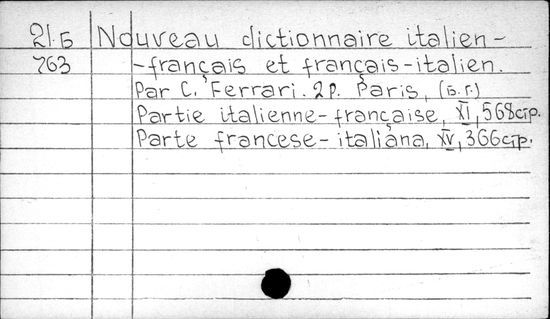 21.Б Nouveau dictionnaire italien-
763 -français et français-italien.
Par C. Ferrari. 2 p. Paris, (б.г.)
Partie italienne-française, XI, 568стр.
Parte francese-italiana, XV, 366стр.